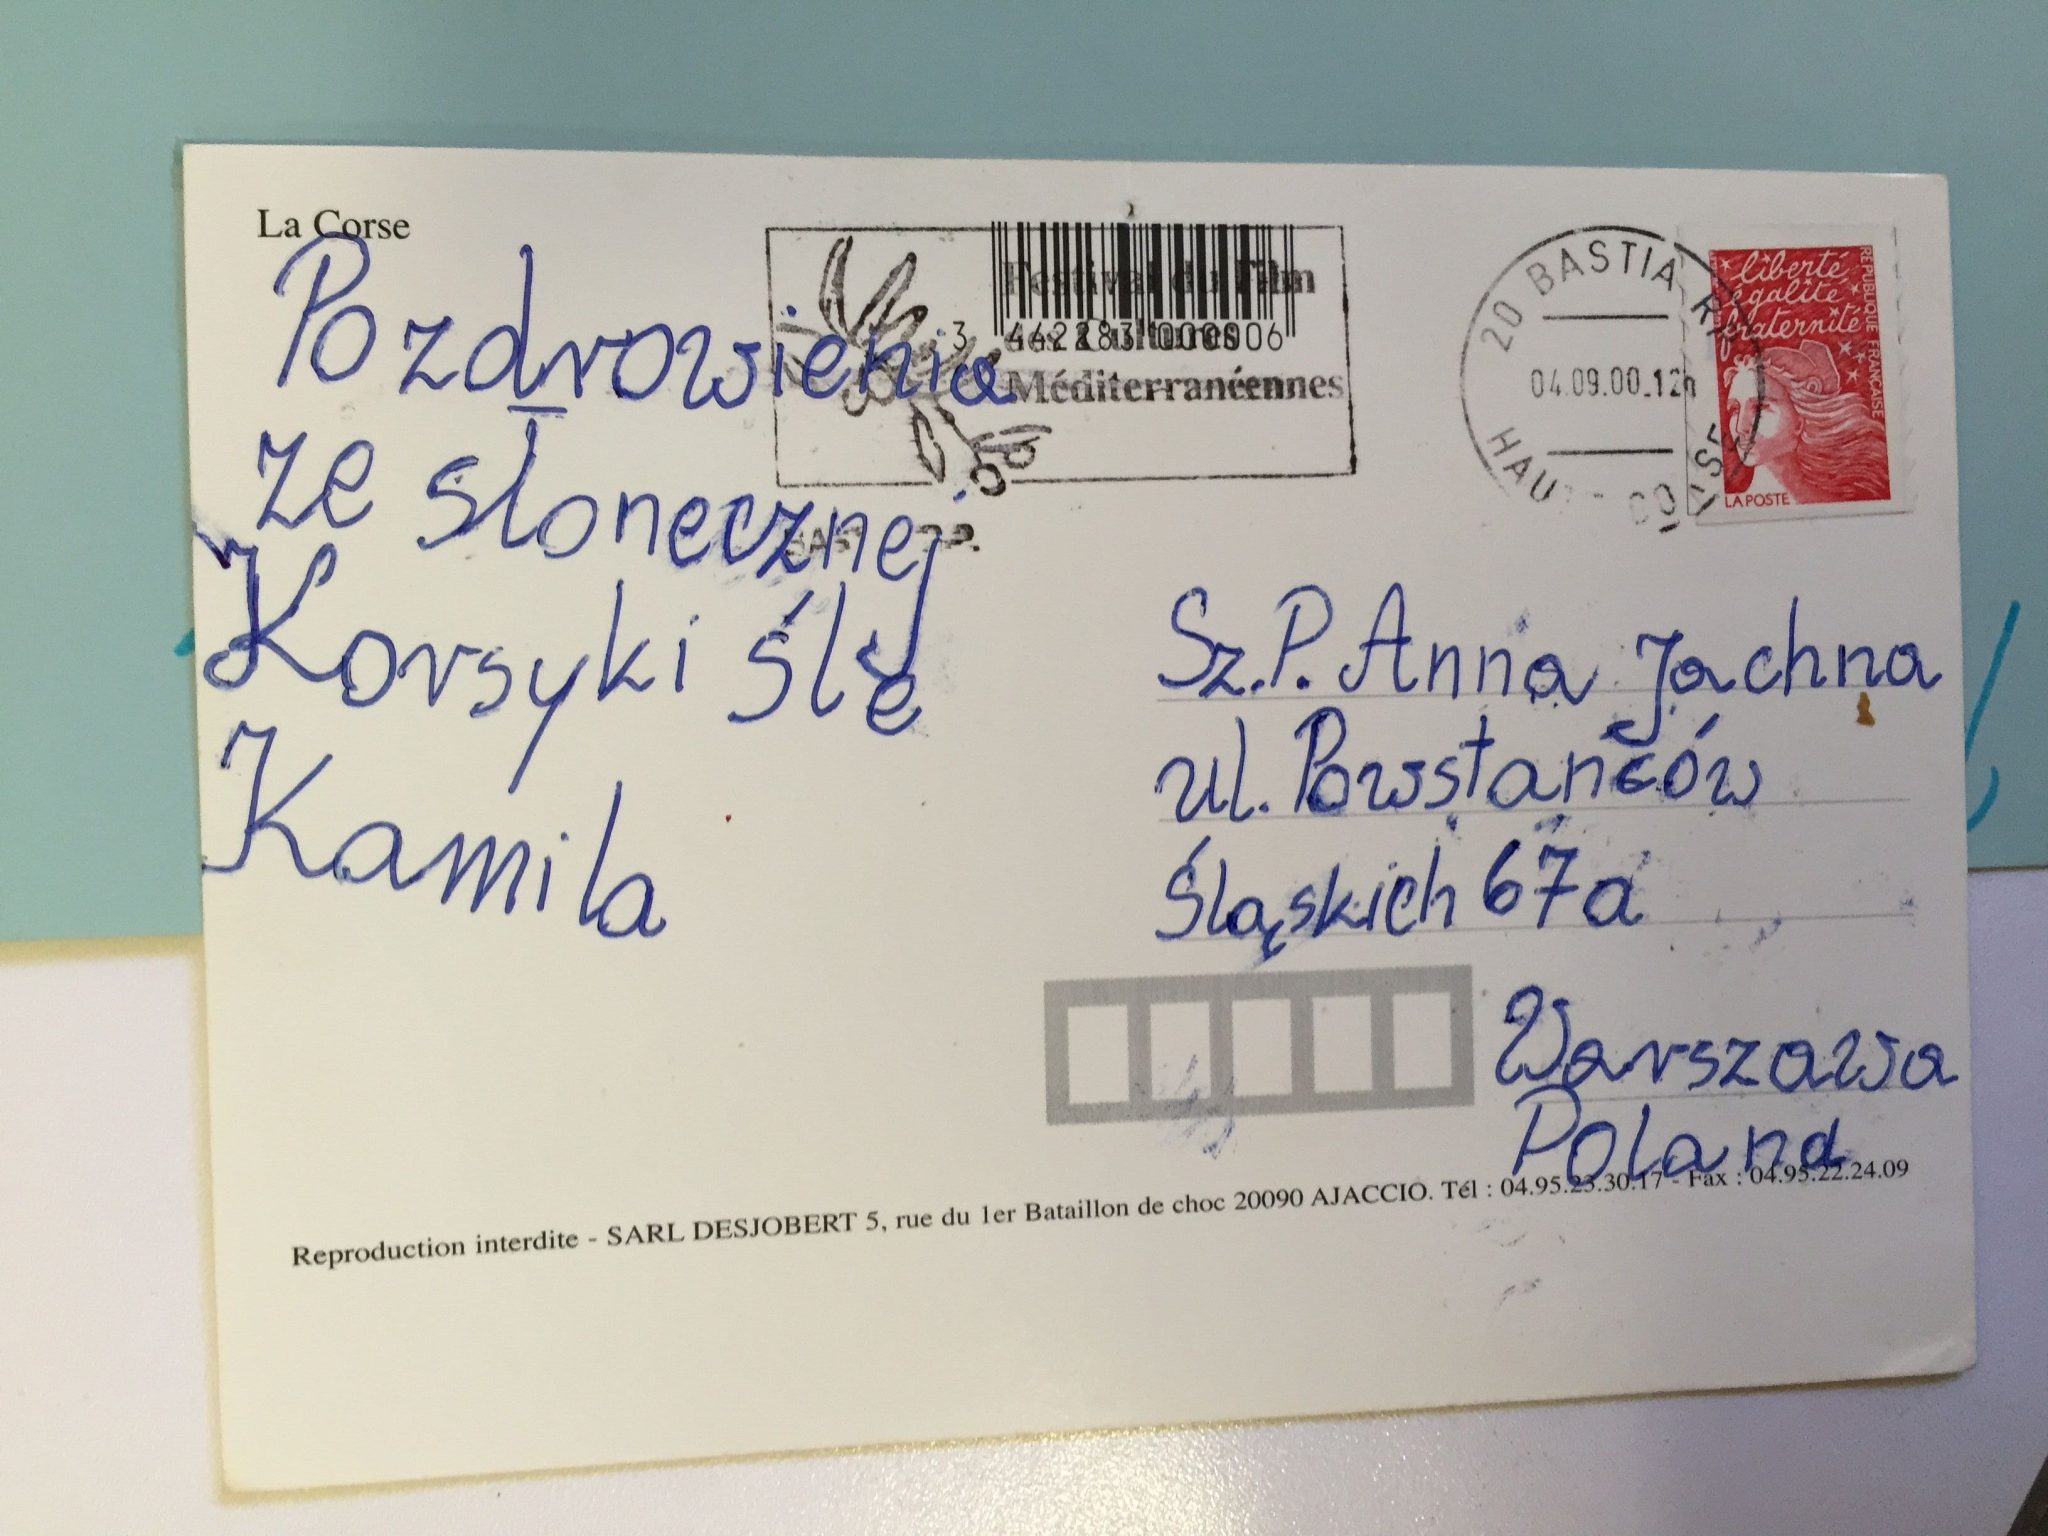 La Corse
Pozdrowienia
ze słonecznej
Korsyki ślę
Kamila
Festival du Film
3 442283 000006
des Cultures
Méditerranéennes
20 BASTIA R.P.
04.09.00.12h
liberté
égalité
fraternité
RÉPUBLIQUE FRANÇAISE
LA POSTE
Sz.P. Anna Jachna
ul. Powstańców
Śląskich 67a
Warszawa
Poland
Reproduction interdite - SARL DESJOBERT 5, rue du 1er Bataillon de choc 20090 AJACCIO. Tél : 04.95.23.30.17 - Fax : 04.95.22.24.09